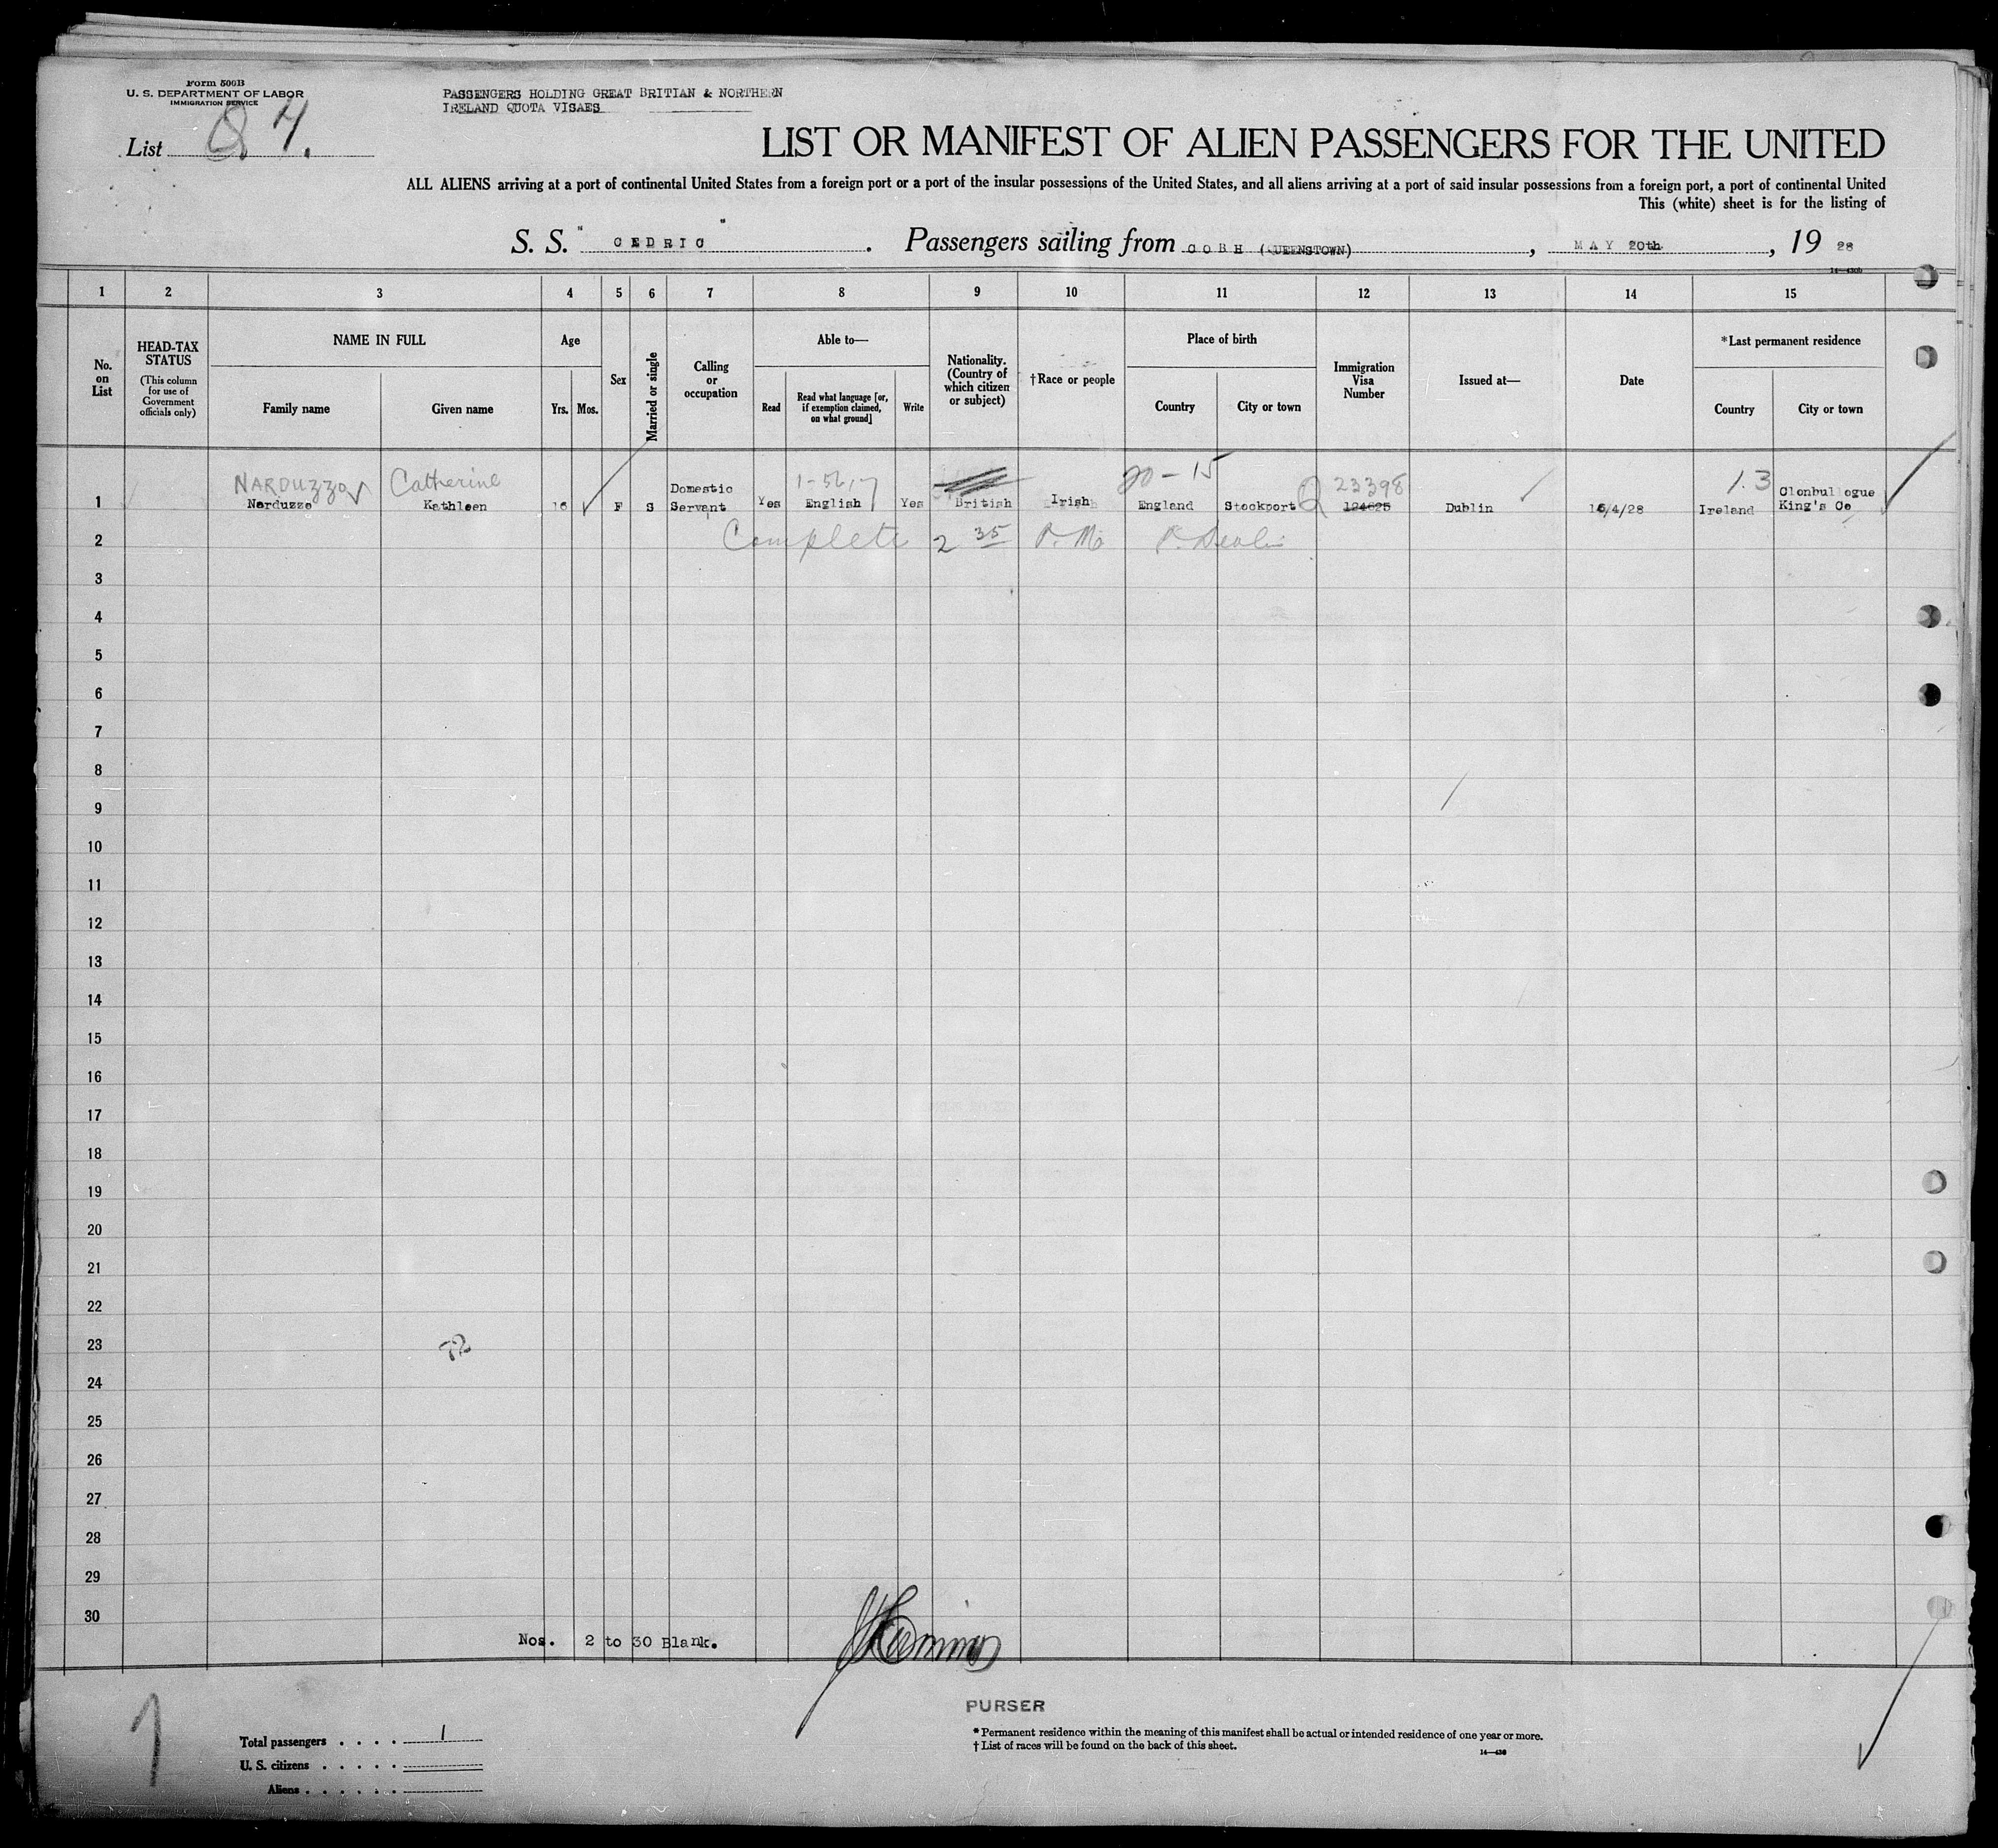 Form 500B
U. S. DEPARTMENT OF LABOR
IMMIGRATION SERVICE
List 8.4.
PASSENGERS HOLDING GREAT BRITIAN & NORTHERN
IRELAND QUOTA VISAES
LIST OR MANIFEST OF ALIEN PASSENGERS FOR THE UNITED
ALL ALIENS arriving at a port of continental United States from a foreign port or a port of the insular possessions of the United States, and all aliens arriving at a port of said insular possessions from a foreign port, a port of continental United
This (white) sheet is for the listing of
S. S. " CEDRIC " . Passengers sailing from COBH (QUEENSTOWN) , MAY 20th , 19 28
14—430b
1 2 3 4 5 6 7 8 9 10 11 12 13 14 15
No. on List
HEAD-TAX STATUS
(This column for use of Government officials only)
NAME IN FULL
Family name
Given name
Age
Yrs.
Mos.
Sex
Married or single
Calling or occupation
Able to—
Read
Read what language [or, if exemption claimed, on what ground]
Write
Nationality. (Country of which citizen or subject)
†Race or people
Place of birth
Country
City or town
Immigration Visa Number
Issued at—
Date
*Last permanent residence
Country
City or town
NARDUZZO Catherine 20-15 23398 1.3
1 Narduzzo Kathleen 16 F S Domestic Servant Yes English Yes British Irish England Stockport Q 124625 Dublin 16/4/28 Ireland Clonbullogue King's Co
2 Complete 2 35 P.M.
3
4
5
6
7
8
9
10
11
12
13
14
15
16
17
18
19
20
21
22
23
24
25
26
27
28
29
30
Nos. 2 to 30 Blank.
PURSER
Total passengers . . . . 1
U. S. citizens . . . . .
Aliens . . . . . .
* Permanent residence within the meaning of this manifest shall be actual or intended residence of one year or more.
† List of races will be found on the back of this sheet.
14—430